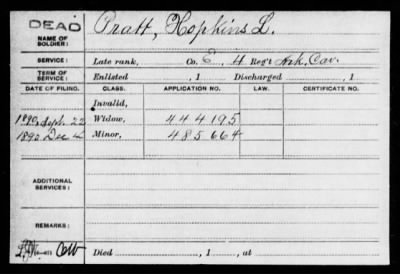 DEAD
NAME OF SOLDIER:
Pratt, Hopkins L.
SERVICE:
Late rank, Co. E, 4 Reg't Ark. Cav.
TERM OF SERVICE:
Enlisted , 1 Discharged , 1
DATE OF FILING. CLASS. APPLICATION NO. LAW. CERTIFICATE NO.
Invalid,
1890, Sept. 22 Widow, 444195
1890 Dec 4 Minor, 485664
ADDITIONAL SERVICES:
REMARKS:
Died , 1 , at